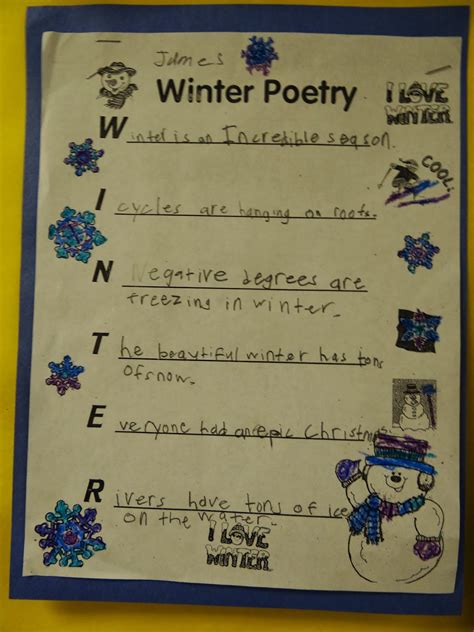 James
Winter Poetry
I LOVE
WINTER
Winter is an Incredible season.
COOL
Icycles are hanging on roofs.
Negative degrees are
freezing in winter.
The beautiful winter has tons
of snow.
Everyone had an epic Christmas
Rivers have tons of ice
on the water.
I LOVE
WINTER